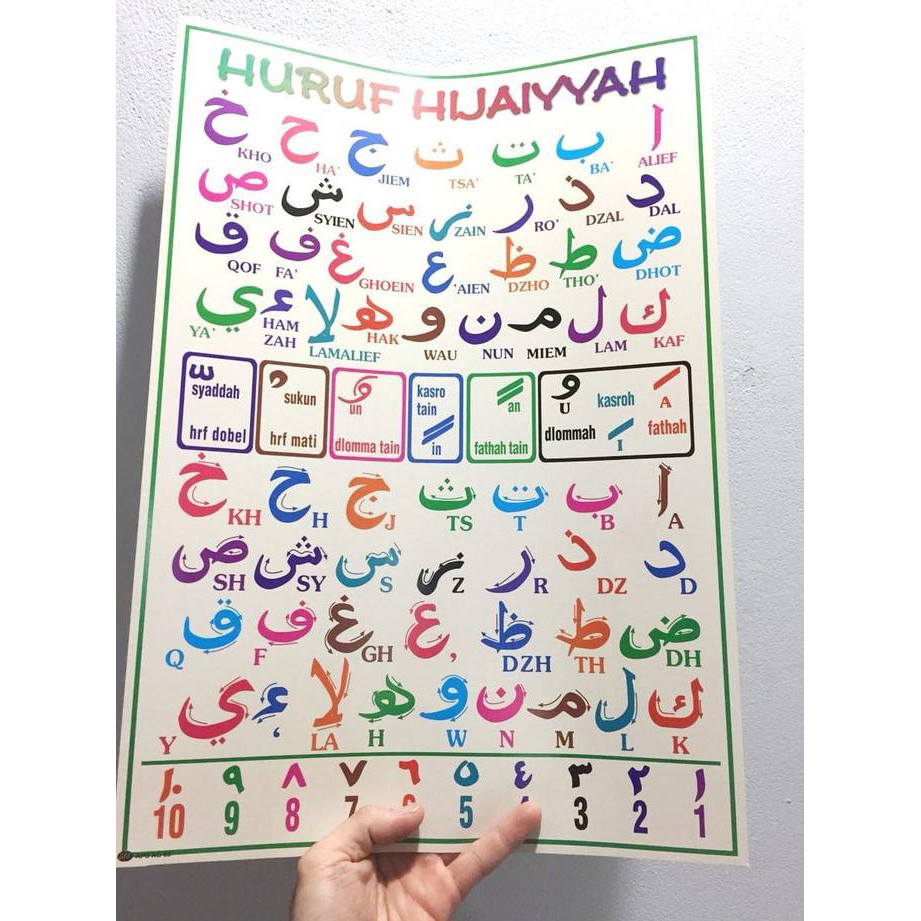 HURUF HIJAIYYAH
ا ب ت ث ج ح خ
ALIEF BA' TA' TSA' JIEM HA' KHO
د ذ ر ز س ش ص
DAL DZAL RO' ZAIN SIEN SYIEN SHOT
ض ط ظ ع غ ف ق
DHOT THO' DZHO 'AIEN GHOEIN FA' QOF
ك ل م ن و ه لا ء ي
KAF LAM MIEM NUN WAU HAK LAMALIEF HAM ZAH YA'
syaddah
hrf dobel
sukun
hrf mati
un
dlomma tain
kasro
tain
in
an
fathah tain
U
dlommah
kasroh
I
A
fathah
ا ب ت ث ج ح خ
A B T TS J H KH
د ذ ر ز س ش ص
D DZ R Z S SY SH
ض ط ظ ع غ ف ق
DH TH DZH , GH F Q
ك ل م ن و ه لا ء ي
K L M N W H LA ‘ Y
١ ٢ ٣ ٤ ٥ ٦ ٧ ٨ ٩ ١٠
1 2 3 5 7 8 9 10